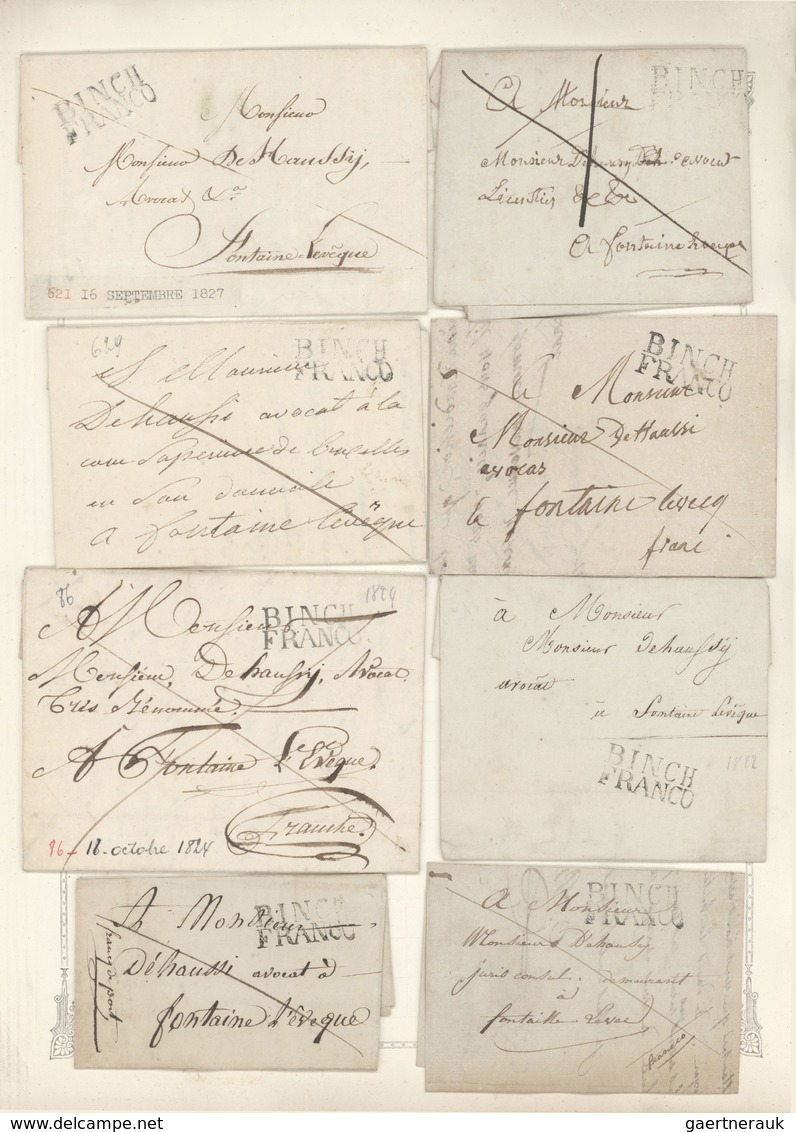 BINCH
FRANCO
Monsieur
Monsieur De Haussy,
Avocat &a
Fontaine-Levêque
621 16 SEPTEMBRE 1827
BINCH
FRANCO
A Monsieur
Monsieur Dehaussy avocat
Licentier
A fontaine
629
BINCH
FRANCO
A Monsieur
Dehaussi avocat à la
cour Superieure de bruxelles
en Son domicile
a fontaine levêque
BINCH
FRANCO
a Monsieur
Monsieur DeHaussi
avocas
à fontaine levecq
franc
86
1824
BINCH
FRANCO
A Monsieur
Monsieur, Dehaussij, Avocat
tres Rénommé.
A Fontaine L'Evêque.
Franche.
86 - 18 - octobre 1824
à Monsieur
Monsieur Dehaussij
avocat
à Fontaine Levêque
BINCH
FRANCO
1812
BINCH
FRANCO
A Monsieur
Déhaussi avocat à
fontaine L'évêque
francq de port
BINCH
FRANCO
A Monsieur
Monsieur D'ehaussy
juris consul demeurant
à
fontaille
franco
gaertnerauk